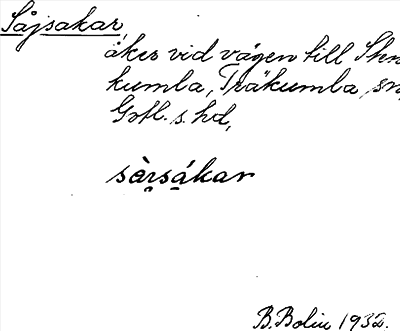 Såjsakar,
åker vid vägen till
kumla, Träkumla sn,
Gotl. s. hd,
sàrsákar
B. Bolin 1932.